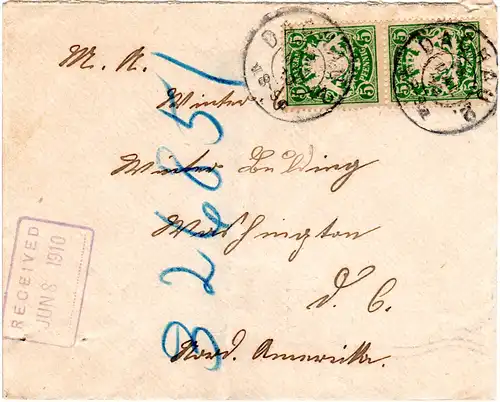 M. A.
Winter.
Winter Bulding
Washington
D. C.
Nord. Amerika.
326851
RECEIVED
JUN 8 1910
5 5
5 5